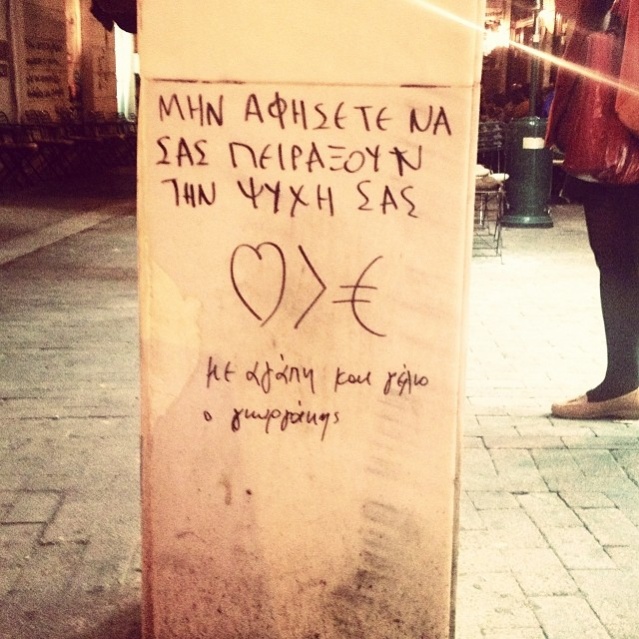 ΜΗΝ ΑΦΗΣΕΤΕ ΝΑ
ΣΑΣ ΠΕΙΡΑΞΟΥΝ
ΤΗΝ ΨΥΧΗ ΣΑΣ
♡>€
με αγάπη και γέλιο
ο γιωργάκης